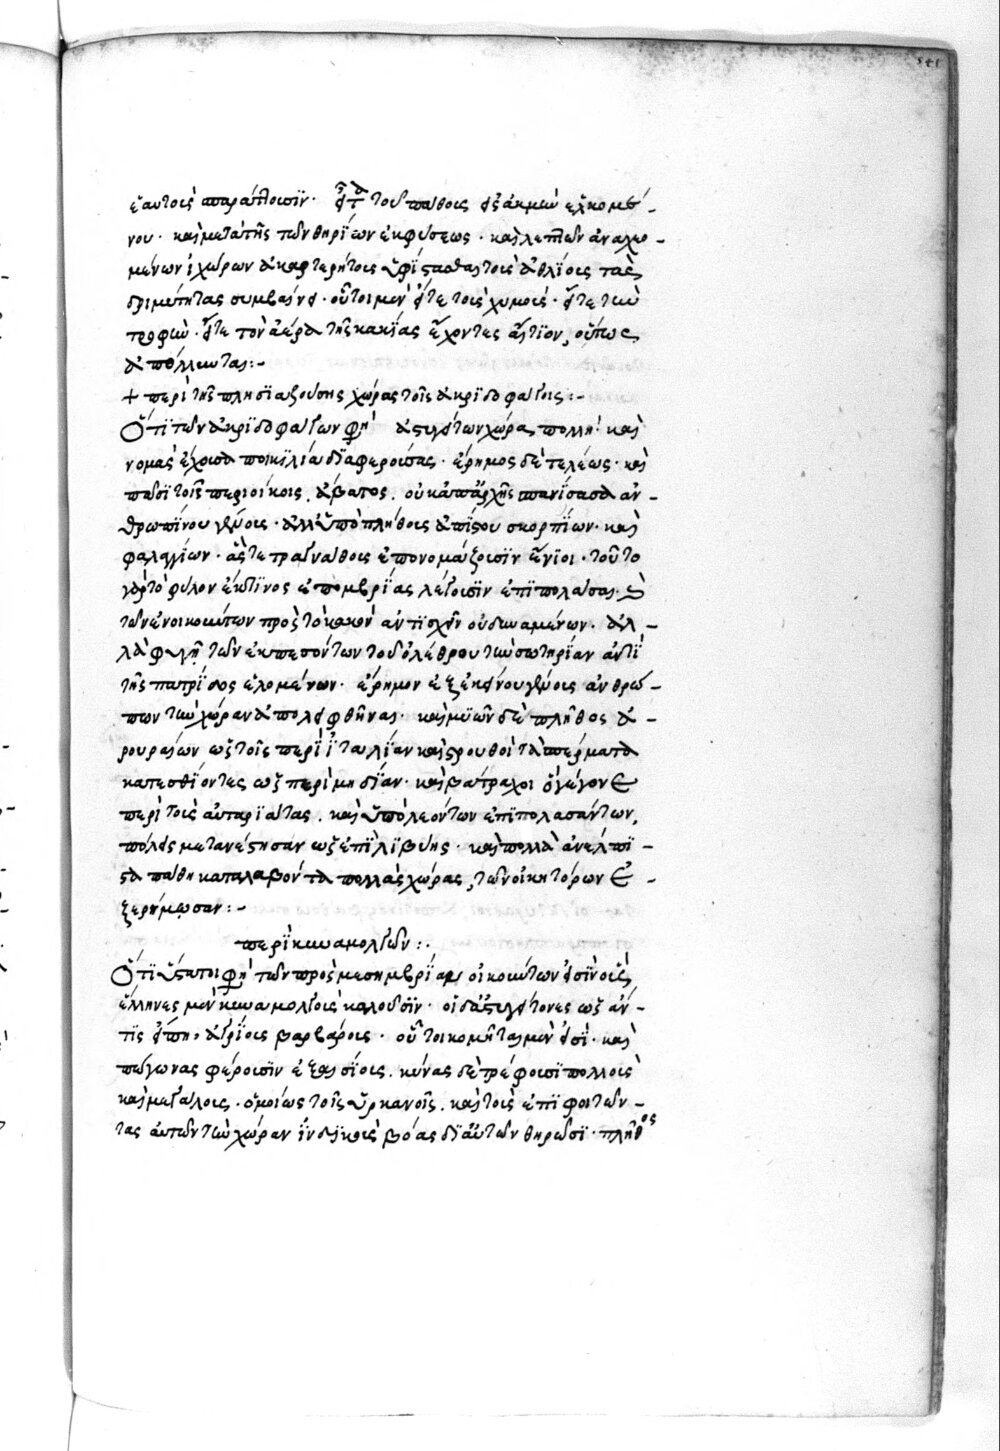 541
ἑαυτοὺς παραπλουσιν· εἶτα τοῦ πάθους εἰς ἀκμὴν ἑλκομέ-
νου· καὶ μετὰ τῆς τῶν θηρίων ἐκφύσεως· καὶ λεπτῶν ἀναχεο-
μένων ἰχώρων ἀκαρτερήτους ὑφίστασθαι τοὺς ἀθλίους τὰς
δριμύτητας συμβαίνει· οὗτοι μὲν εἴτε τοὺς χυμοὺς· εἴτε τὴν
τροφὴν· εἴτε τὸν ἀέρα τῆς κακίας ἔχοντες αἴτιον, οὕπως
ἀπόλλυνται:-
+ περὶ τῆς πλησιαζούσης χώρας τοῖς ἀκριδοφάγοις:-
Ὅτι τῶν ἀκριδοφάγων φη ἀστυγείτων χώρα πολλὴ· καὶ
νομὰς ἔχουσα ποικιλία διαφερούσας· ἔρημος δὲ τελέως· καὶ
πᾶσι τοῖς περιοίκοις, ἄβατος, οὐκ ἀπ' ἀρχῆς σπανίσασα ἀν-
θρωπίνου γένους· ἀλλ' ὑπὸ πλήθους ἀπίστου σκορπίων· καὶ
φαλαγγίων· ἃς τετραγνάθους ἐπονομάζουσιν ἔνιοι· τοῦτο
γὰρ τὸ φῦλον ἔκ τινος ἐπομβρίας λέγουσιν ἐπιπολάσαι· καὶ
τῶν ἐνοικούντων πρὸς τὸ κακὸν ἀντισχεῖν οὐ δυναμένων· ἀλ-
λὰ φυγῇ τῶν ἐκπεσόντων τοῦ ὀλέθρου τὴν σωτηρίαν ἀντὶ
τῆς πατρίδος ἑλομένων· ἔρημον ἐξ ἐκείνου γένους ἀνθρώ-
πων τὴν χώραν ἀπολειφθῆναι· καὶ μυῶν δὲ πλῆθος ἀ-
ρουραίων ὡς τοῖς περὶ ἰταλίαν καὶ στρουθοὶ τὰ σπέρματα
κατεσθίοντες ὡς περὶ μηδίαν· καὶ βάτραχοι ὃ γέγονε
περὶ τοὺς αὐταριάτας, καὶ ὑπὸ λεόντων ἐπιπολασάντων,
πόλεις μετανέστησαν ὡς ἐπὶ λιβύης· καὶ πολλὰ ἀνέλπι-
στα πάθη καταλαβόντα πολλὰς χώρας, τῶν οἰκητόρων ἐ-
ξερήμωσαν:-
περὶ κυναμολγῶν:·
Ὅτι ὑστάτους φη τῶν πρὸς μεσημβρίαν οἰκούντων εἰσὶν οὓς
ἕλληνες μὲν κυναμολγοὺς καλοῦσιν· οἱ δ' ἀστυγείτονες ὡς ἄν-
τις εἴποι, ἀγρίους βαρβάρους· οὗτοι κομῆται μὲν εἰσὶ· καὶ
πώγωνας φέρουσιν ἐξαισίους, κύνας δὲ τρέφουσι πολλοὺς
καὶ μεγάλους, ὁμοίως τοῖς ὑρκανοῖς, καὶ τοὺς ἐπιφοιτῶν-
τας αὐτῶν τὴν χώραν ἰνδικοὺς βόας δι' αὐτῶν θηρῶσι· πλῆθος